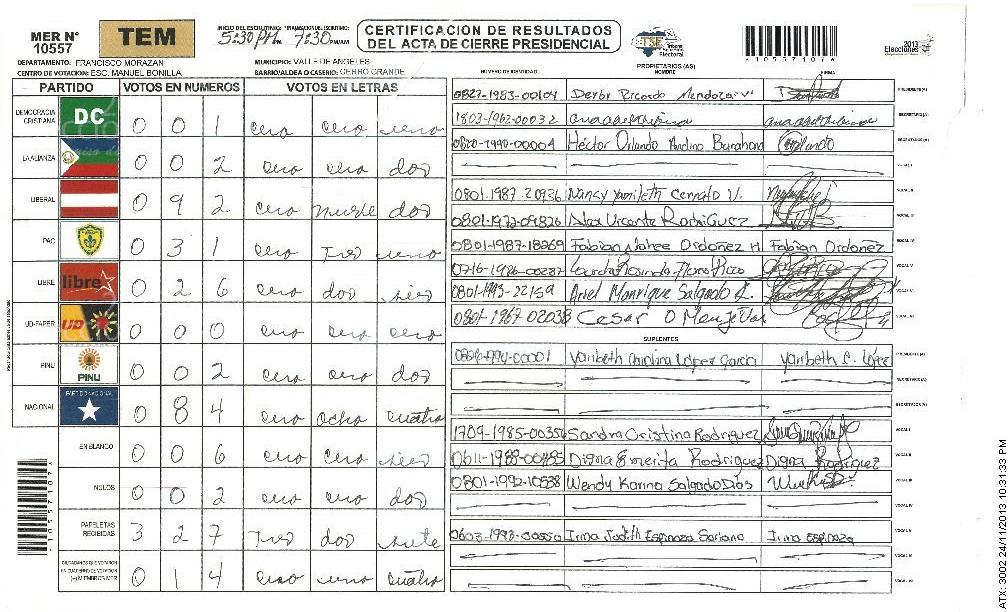 MER N° 10557
TEM
INICIO DEL ESCRUTINIO: 5:30 PM
7:30 PM/AM
CERTIFICACION DE RESULTADOS
DEL ACTA DE CIERRE PRESIDENCIAL
TSE Tribunal Supremo Electoral
10557107
2013 Elecciones
DEPARTAMENTO: FRANCISCO MORAZAN
MUNICIPIO: VALLE DE ANGELES
CENTRO DE VOTACION: ESC. MANUEL BONILLA
BARRIO/ALDEA O CASERIO: CERRO GRANDE
PARTIDO VOTOS EN NUMEROS VOTOS EN LETRAS
DEMOCRACIA CRISTIANA DC 0 0 1 cero cero uno
LA ALIANZA 0 0 2 cero cero dos
LIBERAL 0 9 2 cero nueve dos
PAC 0 3 1 cero tres uno
LIBRE libre 0 2 6 cero dos seis
UD-FAPER UD 0 0 0 cero cero cero
PINU PINU 0 0 2 cero cero dos
NACIONAL PARTIDO NACIONAL 0 8 4 cero ocho cuatro
EN BLANCO 0 0 6 cero cero seis
NULOS 0 0 2 cero cero dos
PAPELETAS RECIBIDAS 3 2 7 tres dos siete
CIUDADANOS QUE VOTARON EN CUADERNO DE VOTACION (+) MIEMBROS MER 0 1 4 cero uno cuatro
PROPIETARIOS (AS)
NUMERO DE IDENTIDAD NOMBRE FIRMA
0827-1983-00104 Ricardo Mendoza PRESIDENTE(A)
1803-1962-00032 SECRETARIO(A)
0820-1990-00004 Héctor Orlando Andino Barahona Orlando ESCRUTADOR(A)
VOCAL I
0801-1987-20936 Nancy Yamileth Cerrato H. VOCAL II
0801-1972-09826 Alex Vicente Rodriguez VOCAL III
0801-1987-18269 Fabian Nahee Ordoñez H Fabian Ordoñez VOCAL IV
0716-1986-00287 VOCAL V
0801-1993-22159 Ariel Manrique Salgado VOCAL VI
0801-1967-02038 Cesar O Menjivar
SUPLENTES
Yaribeth Carolina López García Yaribeth C. López PRESIDENTE(A)
SECRETARIO(A)
ESCRUTADOR(A)
1709-1985-00356 Sandra Cristina Rodriguez VOCAL I
0611-1988-00485 Digna Emerita Rodriguez Digna Rodriguez VOCAL II
0801-1992-10538 Wendy Karina Salgado Dios VOCAL III
VOCAL IV
0603-1993-00550 Irma Judith Espinoza Soriano Irma Espinoza VOCAL V
10557107
ATX-3002 24/11/2013 10:31:33 PM